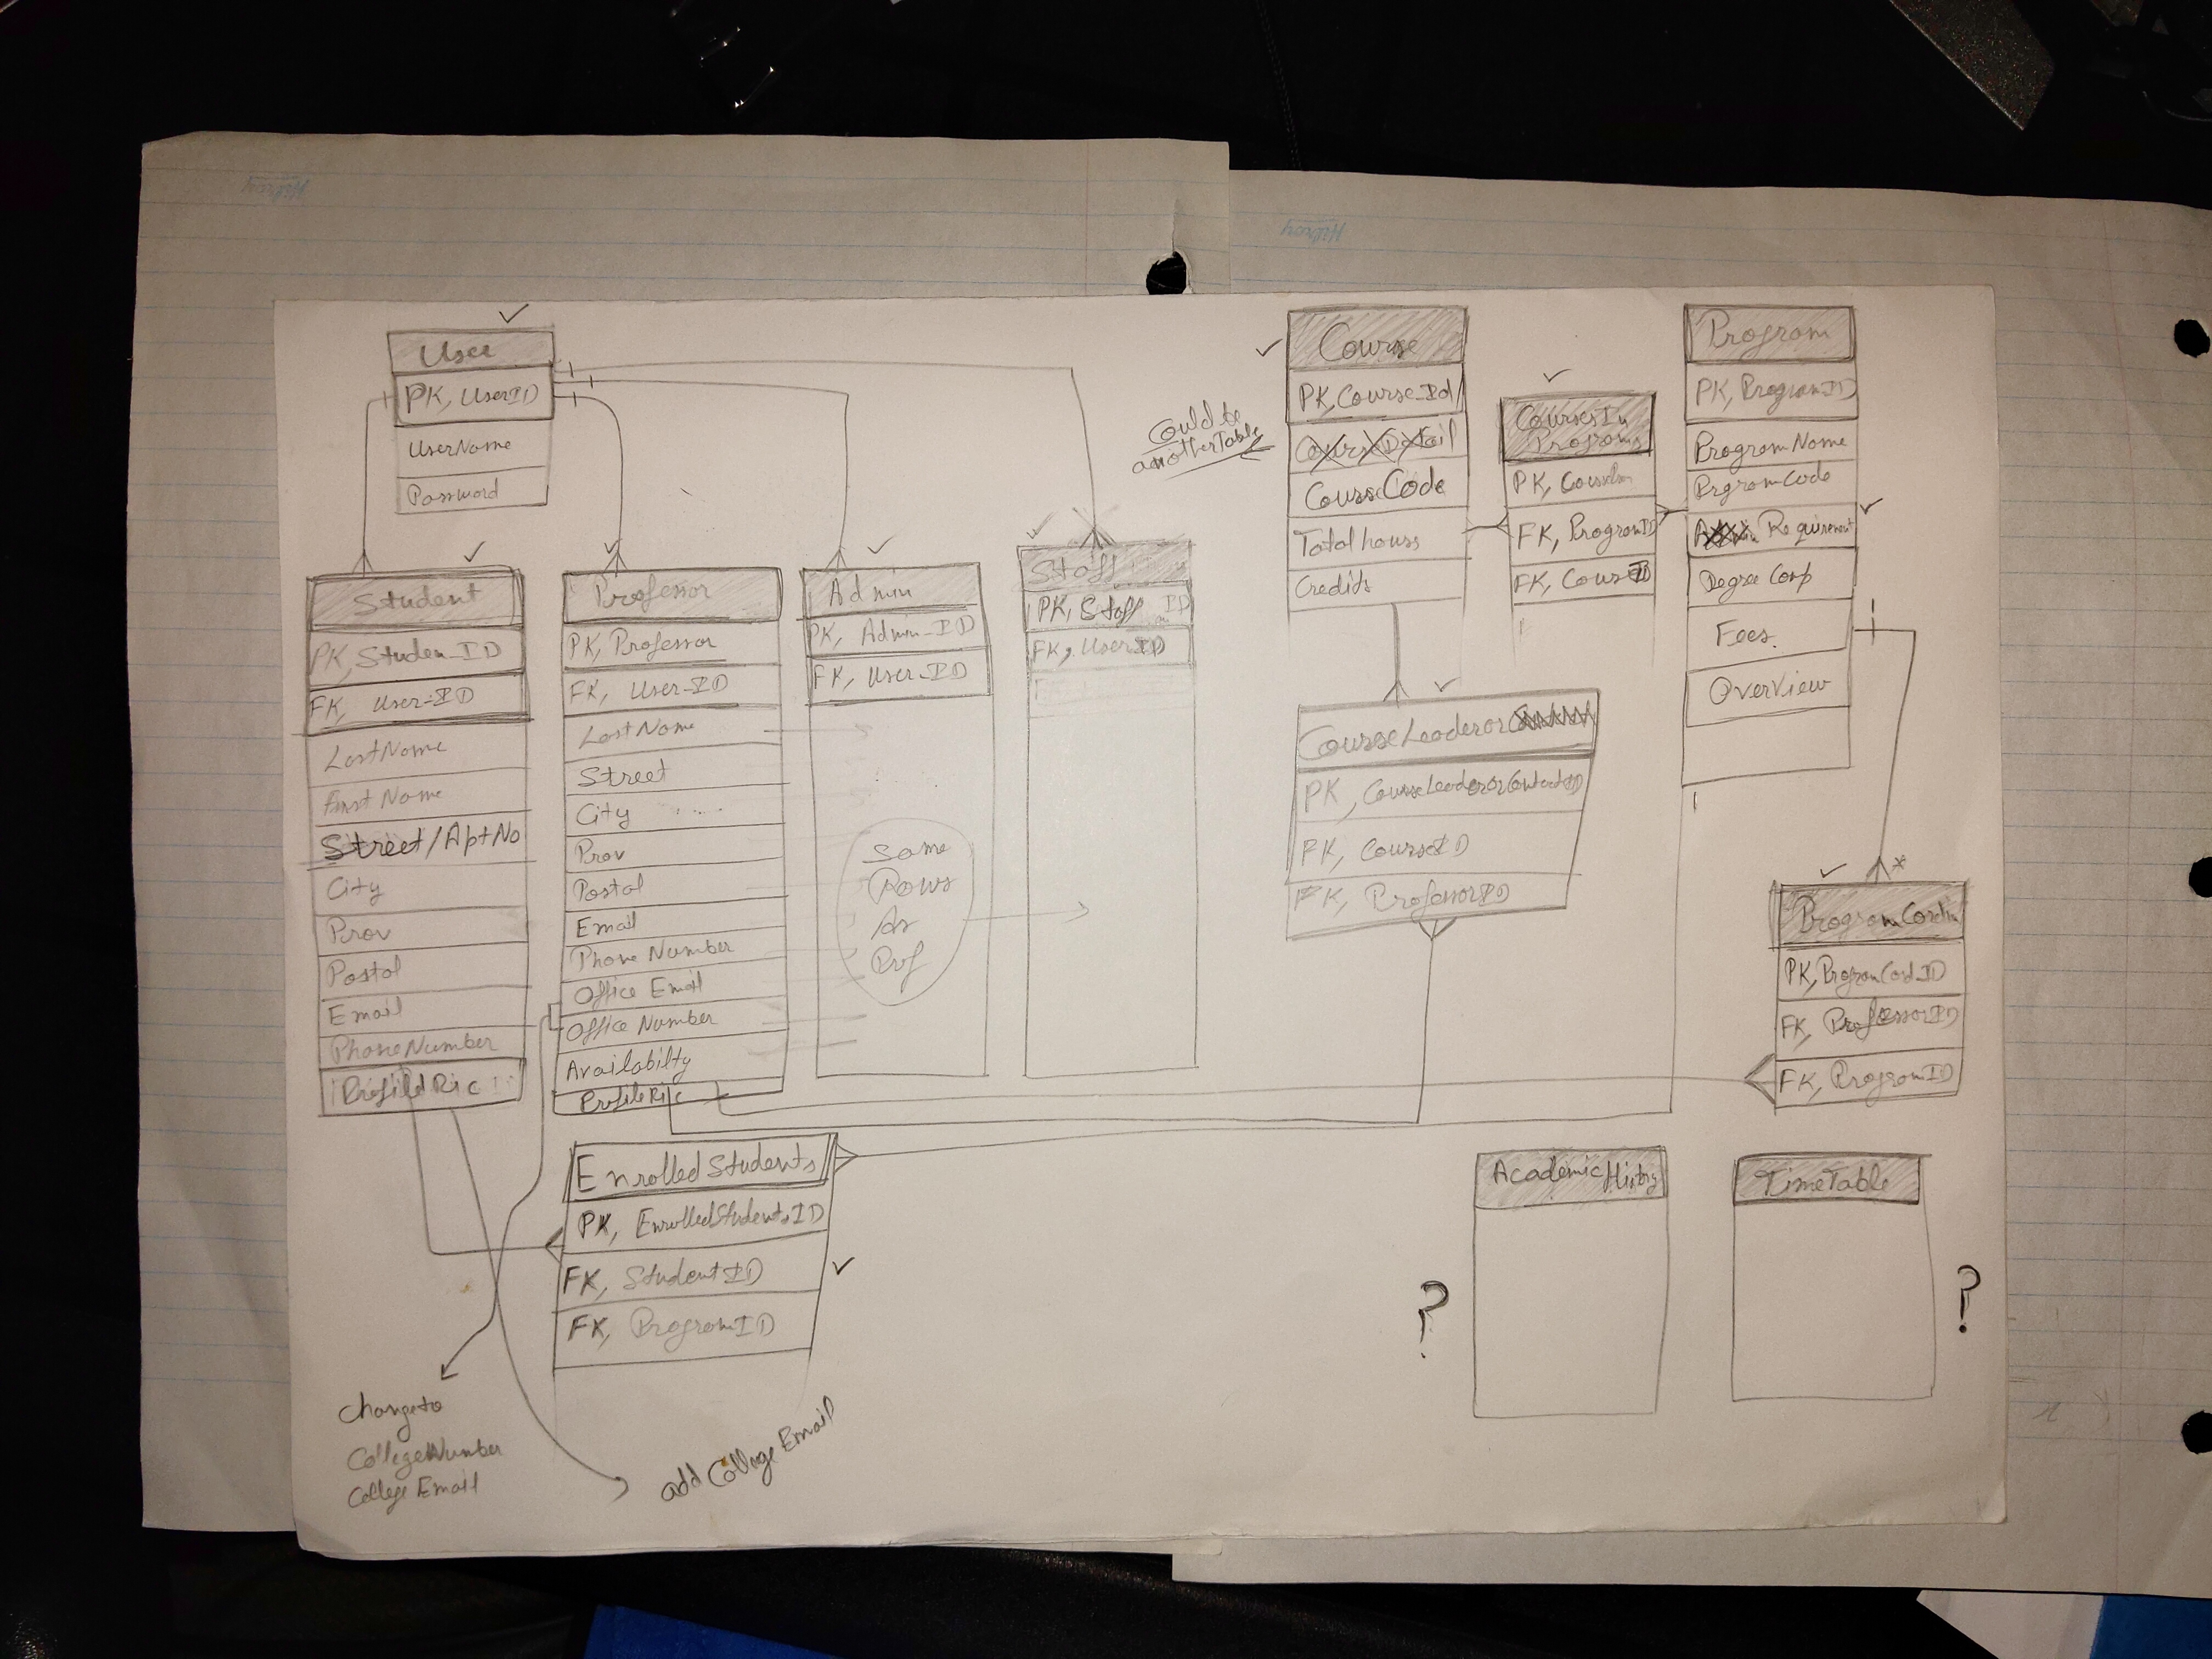 Hilroy
Hilroy
User
PK, UserID
UserName
Password
Student
PK, Studen_ID
FK, User-ID
LastName
First Name
Street/AptNo
City
Prov
Postal
Email
PhoneNumber
Professor
PK, Professor
FK, User-ID
LastName
Street
City
Prov
Postal
Email
Phone Number
Office Email
Office Number
Availabilty
Admin
PK, Admin_ID
FK, User-ID
Same
Rows
As
Prof
Staff
PK, Staff ID
FK, UserID
Could be
another Table
Course
PK, Course_Id
CourseDetail
CourseCode
Total hours
Credits
CoursesIn
Programs
PK,
FK, ProgramID
FK, CourseID
Program
PK, ProgramID
ProgramName
PrgramCode
Requirement
Degree
Fees.
OverView
CourseLeaderor
PK, CourseLeaderorContactID
FK, CourseID
FK, ProfessorID
*
ProgramCordin
PK, ProgramCord_ID
FK, ProfessorID
FK, ProgramID
EnrolledStudents
PK, EnrolledStudentsID
FK, StudentID
FK, ProgramID
AcademicHistory
?
TimeTable
?
Change to
CollegeNumber
College Email
add College Email